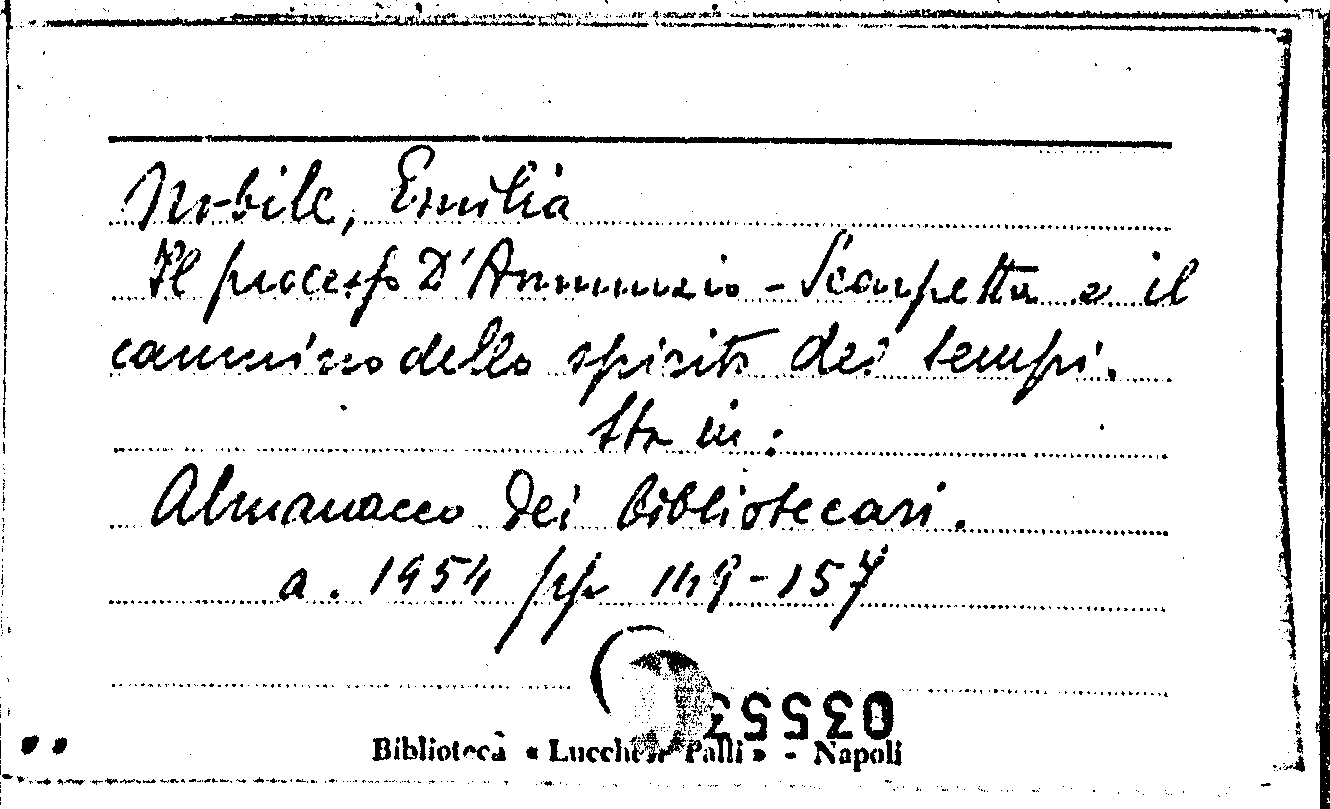 Nobile, Emilia
Il processo D'Annunzio - Scarpetta e il
cammino dello spirito dei tempi.
Sta in:
Almanacco dei bibliotecari.
a. 1954 pp 149-157
Biblioteca « Lucchesi Palli » - Napoli